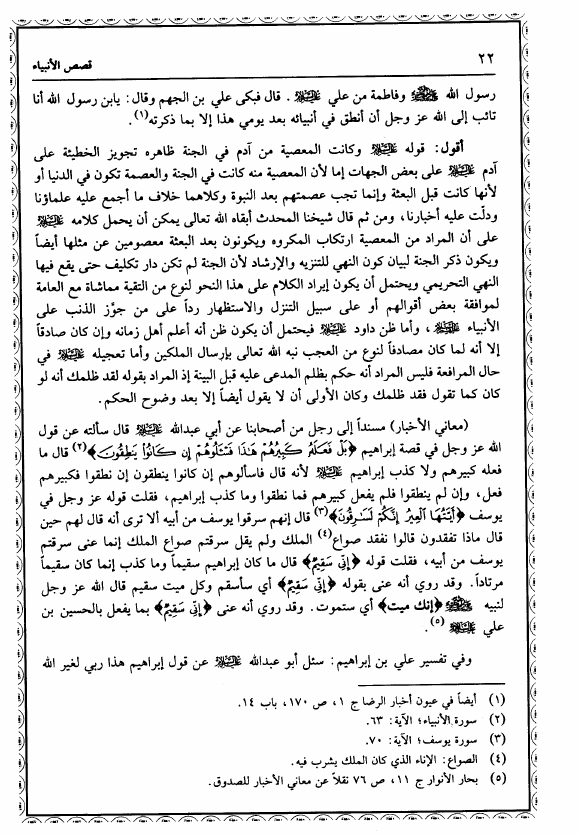 ٢٢
قصص الأنبياء
رسول الله ﷺ وفاطمة من علي عليه السلام. قال فبكى علي بن الجهم وقال: يابن رسول الله أنا
تائب إلى الله عز وجل أن أنطق في أنبيائه بعد يومي هذا إلا بما ذكرته(١).
أقول: قوله عليه السلام وكانت المعصية من آدم في الجنة ظاهره تجويز الخطيئة على
آدم عليه السلام على بعض الجهات إما لأن المعصية منه كانت في الجنة والعصمة تكون في الدنيا أو
لأنها كانت قبل البعثة وإنما تجب عصمتهم بعد النبوة وكلاهما خلاف ما أجمع عليه علماؤنا
ودلّت عليه أخبارنا، ومن ثم قال شيخنا المحدث أبقاه الله تعالى يمكن أن يحمل كلامه عليه السلام
على أن المراد من المعصية ارتكاب المكروه ويكونون بعد البعثة معصومين عن مثلها أيضاً
ويكون ذكر الجنة لبيان كون النهي للتنزيه والإرشاد لأن الجنة لم تكن دار تكليف حتى يقع فيها
النهي التحريمي ويحتمل أن يكون إيراد الكلام على هذا النحو لنوع من التقية مماشاة مع العامة
لموافقة بعض أقوالهم أو على سبيل التنزل والاستظهار رداً على من جوّز الذنب على
الأنبياء عليهم السلام، وأما ظن داود عليه السلام فيحتمل أن يكون ظن أنه أعلم أهل زمانه وإن كان صادقاً
إلا أنه لما كان مصادفاً لنوع من العجب نبه الله تعالى بإرسال الملكين وأما تعجيله عليه السلام في
حال المرافعة فليس المراد أنه حكم بظلم المدعى عليه قبل البينة إذ المراد بقوله لقد ظلمك أنه لو
كان كما تقول فقد ظلمك وكان الأولى أن لا يقول أيضاً إلا بعد وضوح الحكم.
(معاني الأخبار) مسنداً إلى رجل من أصحابنا عن أبي عبدالله عليه السلام قال سألته عن قول
الله عز وجل في قصة إبراهيم ﴿بَلْ فَعَلَهُ كَبِيرُهُمْ هَٰذَا فَسْـَٔلُوهُمْ إِن كَانُوا۟ يَنطِقُونَ﴾(٢) قال ما
فعله كبيرهم ولا كذب إبراهيم عليه السلام لأنه قال فاسألوهم إن كانوا ينطقون إن نطقوا فكبيرهم
فعل، وإن لم ينطقوا فلم يفعل كبيرهم فما نطقوا وما كذب إبراهيم، فقلت قوله عز وجل في
يوسف ﴿أَيَّتُهَا ٱلْعِيرُ إِنَّكُمْ لَسَٰرِقُونَ﴾(٣) قال إنهم سرقوا يوسف من أبيه ألا ترى أنه قال لهم حين
قال ماذا تفقدون قالوا نفقد صواع(٤) الملك ولم يقل سرقتم صواع الملك إنما عنى سرقتم
يوسف من أبيه، فقلت قوله ﴿إِنِّى سَقِيمٌ﴾ قال ما كان إبراهيم سقيماً وما كذب إنما كان سقيماً
مرتاداً. وقد روي أنه عنى بقوله ﴿إِنِّى سَقِيمٌ﴾ أي سأسقم وكل ميت سقيم قال الله عز وجل
لنبيه ﷺ ﴿إنك ميت﴾ أي ستموت. وقد روي أنه عنى ﴿إِنِّى سَقِيمٌ﴾ بما يفعل بالحسين بن
علي عليه السلام(٥).
وفي تفسير علي بن إبراهيم: سئل أبو عبدالله عليه السلام عن قول إبراهيم هذا ربي لغير الله
(١) أيضاً في عيون أخبار الرضا ج ١، ص ١٧٠، باب ١٤.
(٢) سورة الأنبياء؛ الآية: ٦٣.
(٣) سورة يوسف؛ الآية: ٧٠.
(٤) الصواع: الإناء الذي كان الملك يشرب فيه.
(٥) بحار الأنوار ج ١١، ص ٧٦ نقلاً عن معاني الأخبار للصدوق.